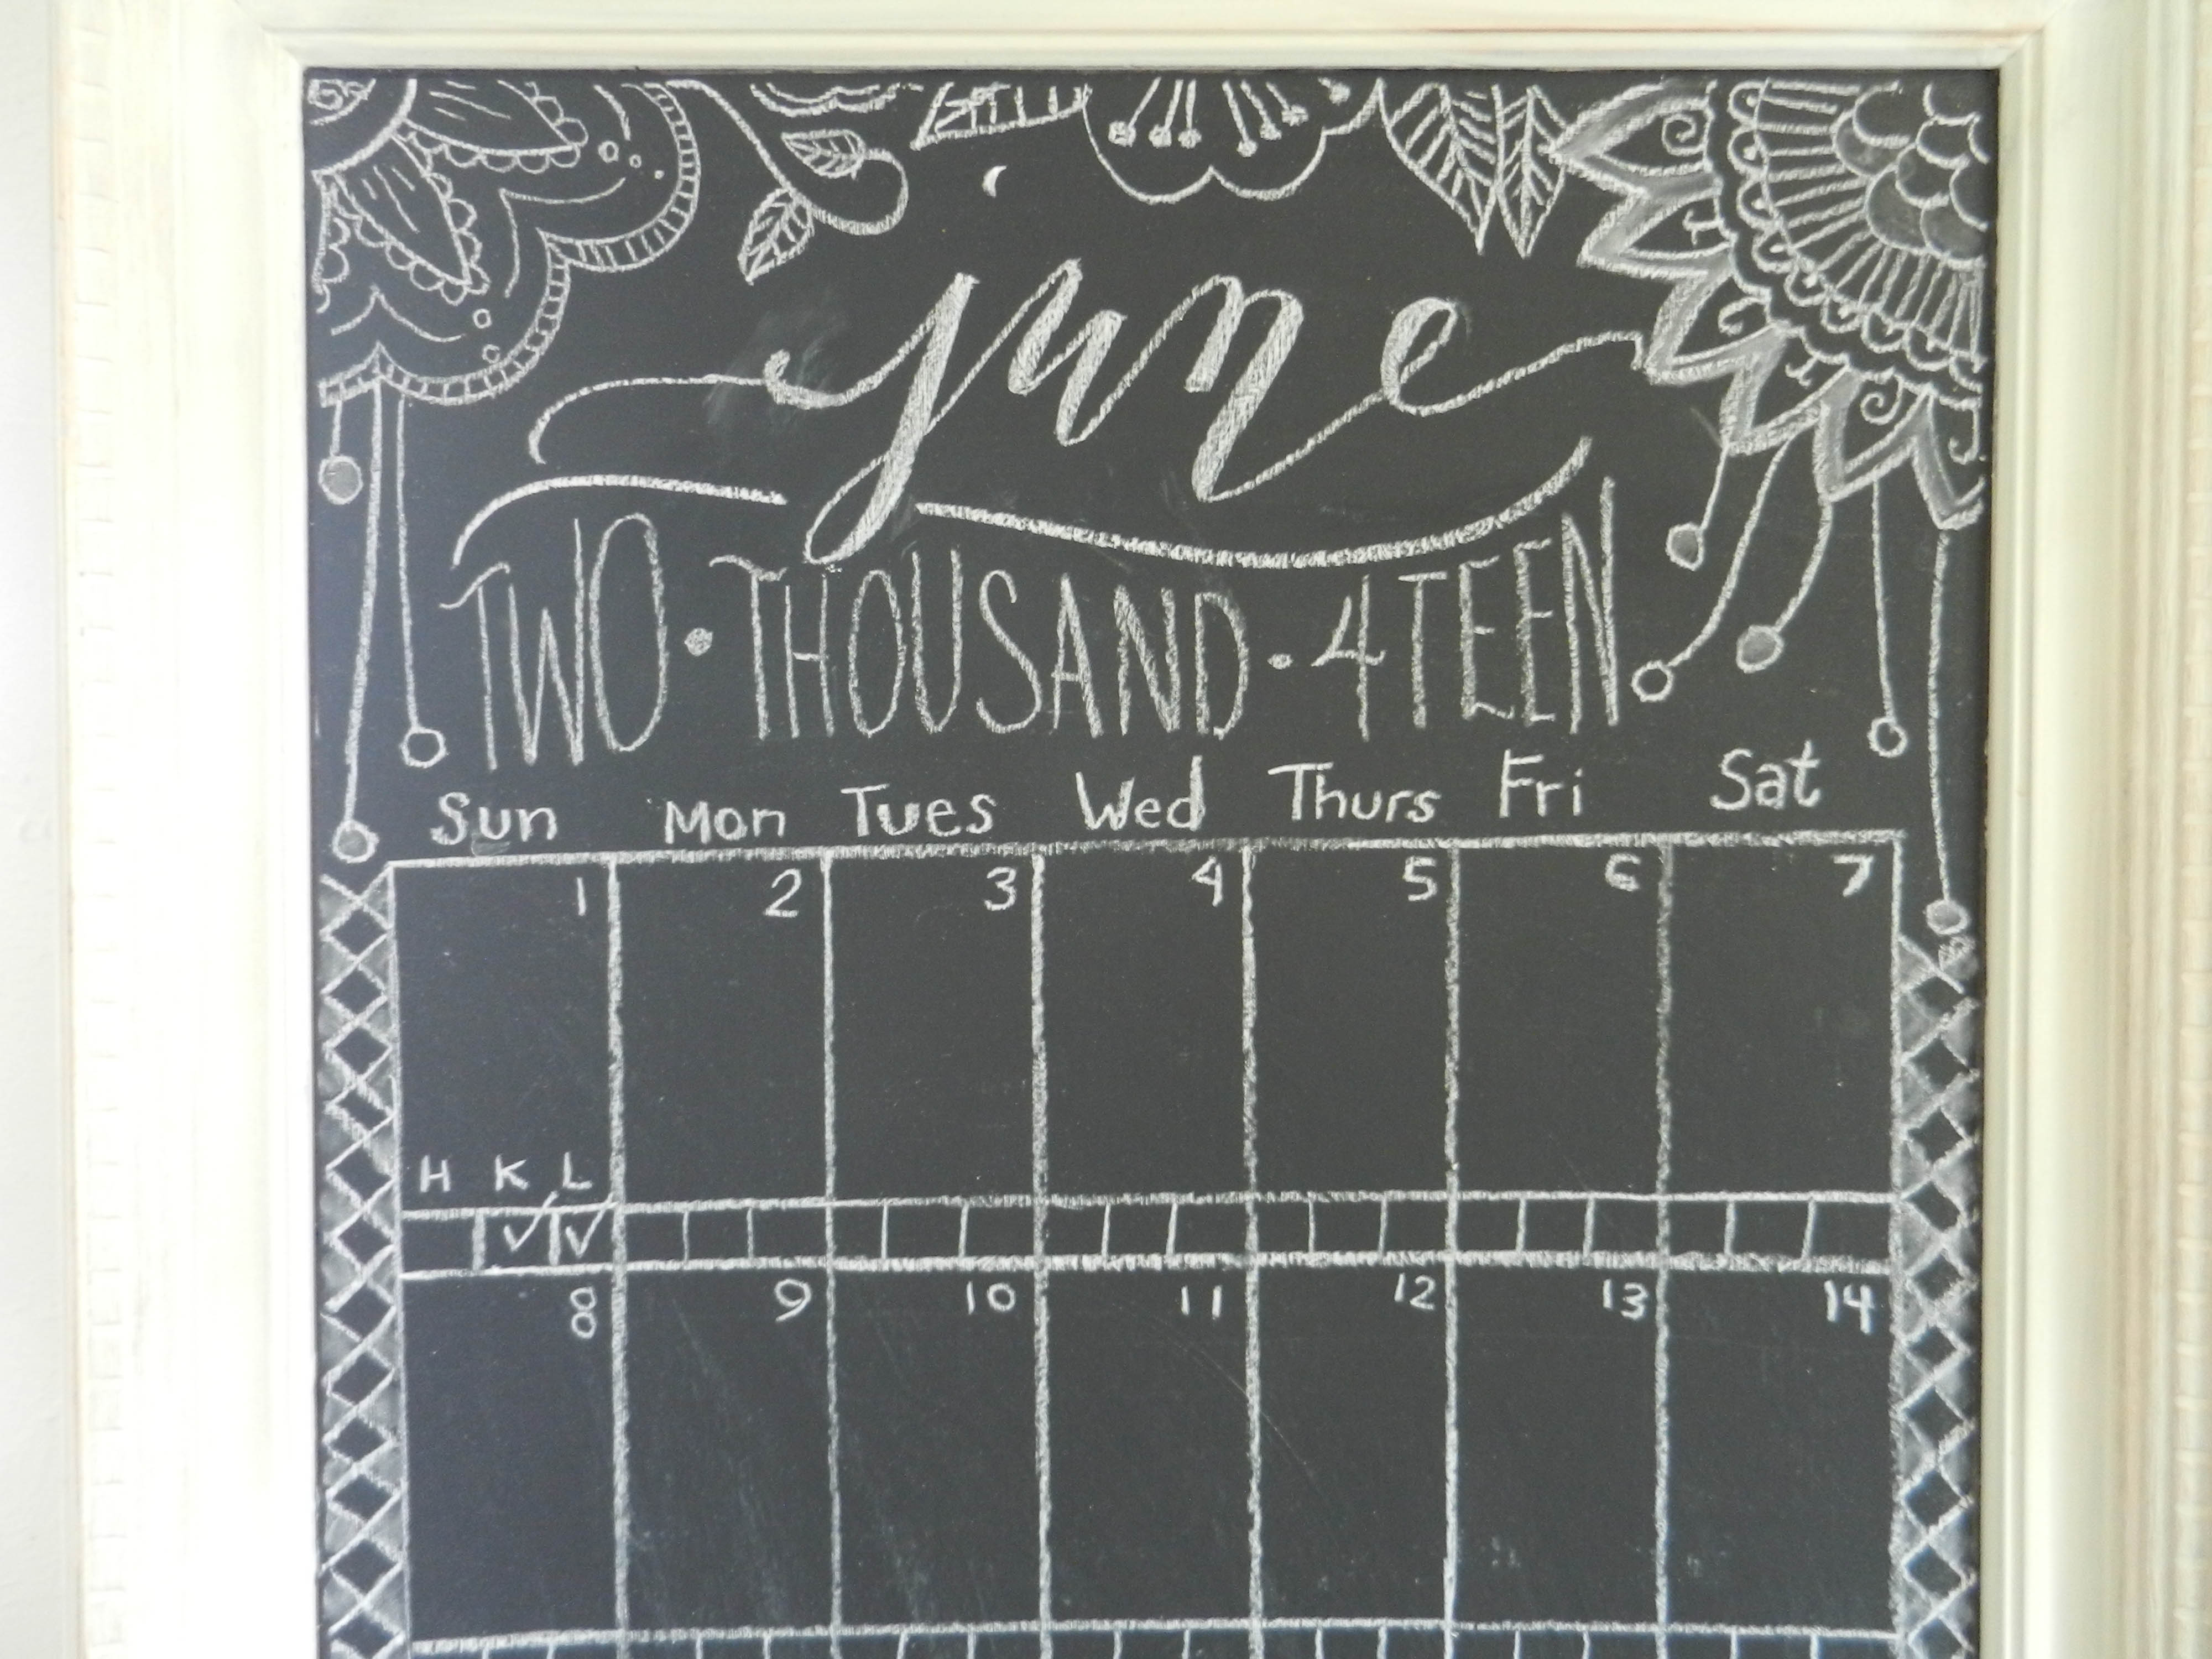 june
TWO • THOUSAND • 4TEEN
Sun Mon Tues Wed Thurs Fri Sat
1 2 3 4 5 6 7
H K L
8 9 10 11 12 13 14